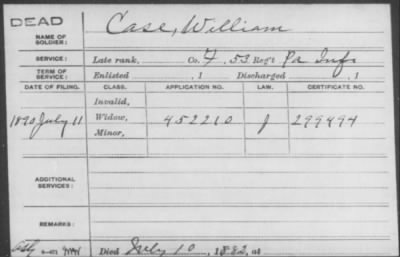 DEAD
NAME OF SOLDIER: Case, William
SERVICE: Late rank, Co. F, 53 Reg't Pa Inf.
TERM OF SERVICE: Enlisted , 1 Discharged , 1
DATE OF FILING. CLASS. APPLICATION NO. LAW. CERTIFICATE NO.
Invalid,
1890 July 11 Widow, 452210 J 299494
Minor,
ADDITIONAL SERVICES:
REMARKS:
Died July 10, 1882, at